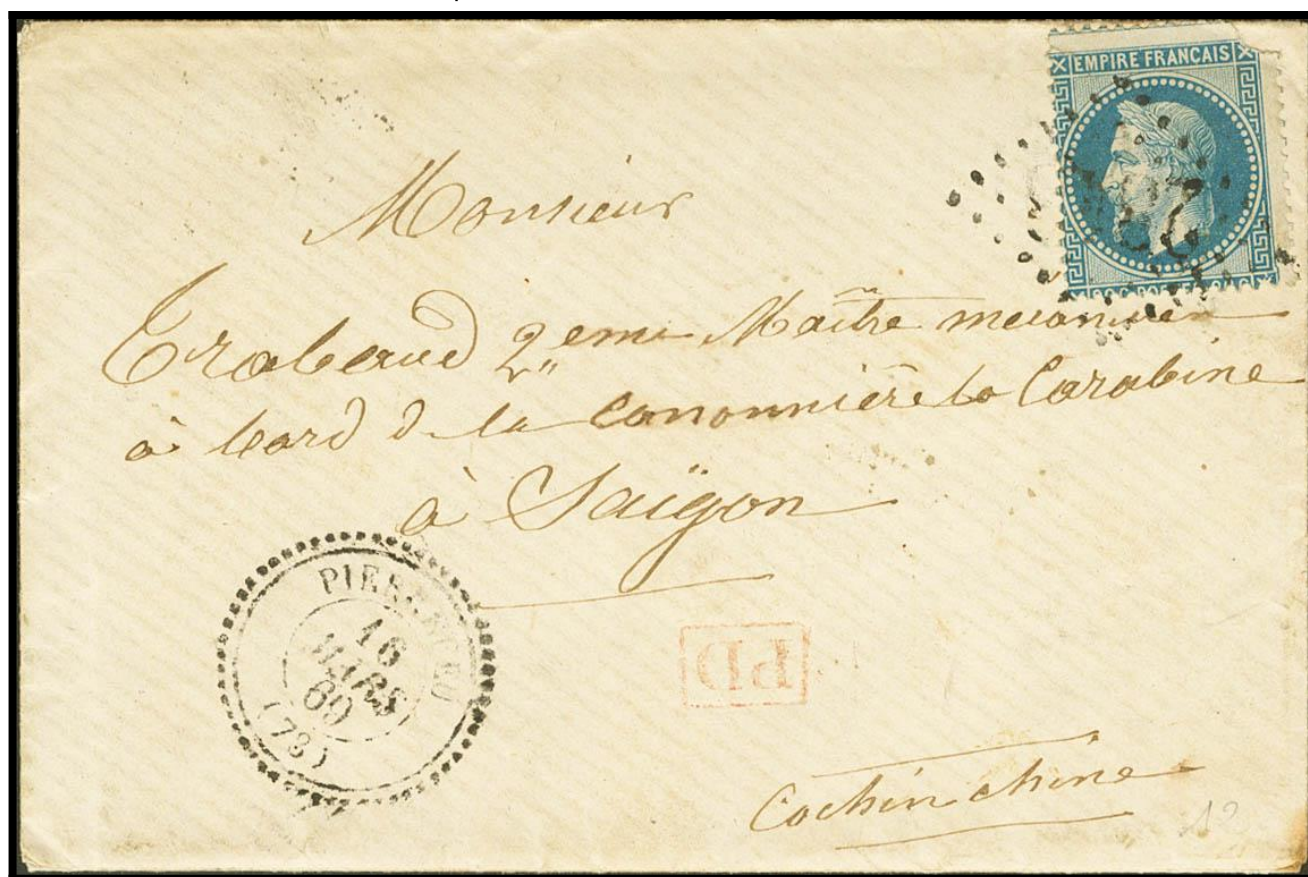 EMPIRE FRANCAIS
Monsieur
Trabaud 2eme Maître mecanicien
à bord de la canonnière la Carabine
à Saïgon
16
MARS
69
(78)
PD
Cochinchine
12